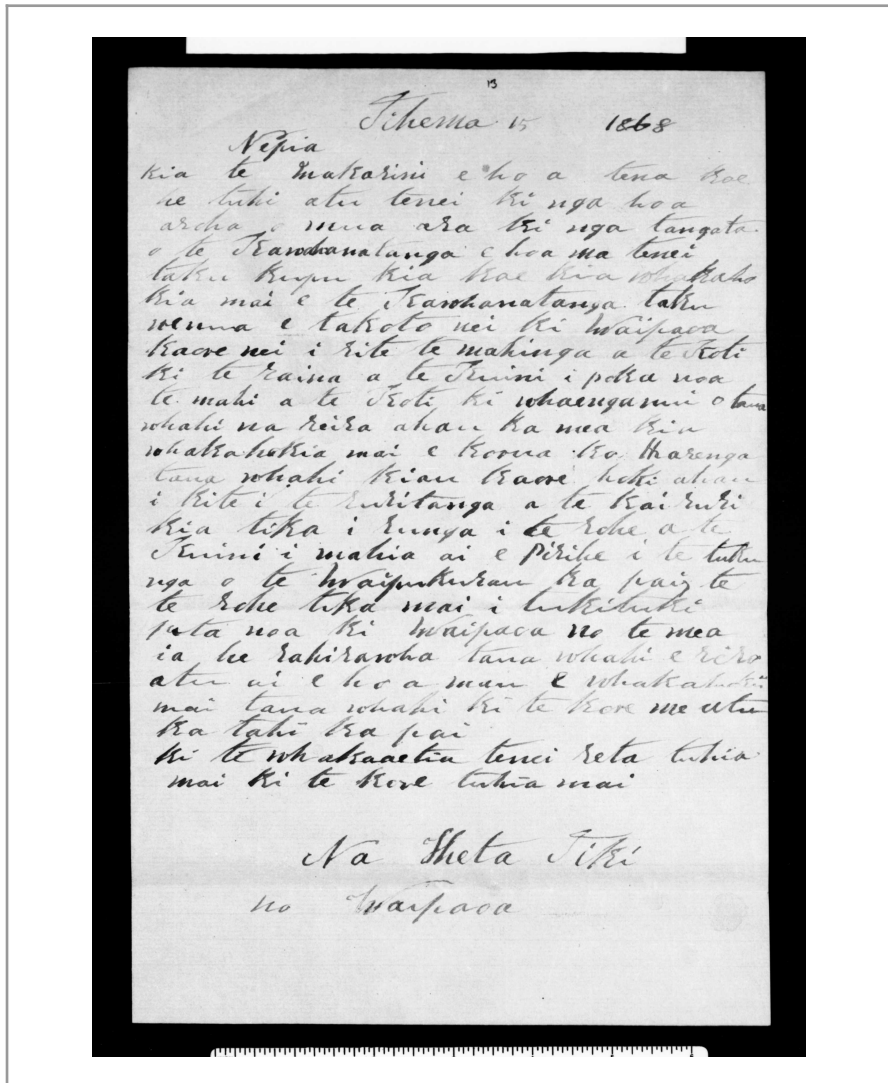 13
Tihema 15 1868
Nepia
Kia te Makarini e ho a tena koe
he tuhi atu tenei ki nga hoa
aroha o mua ara ki nga tangata
o te Kawhanatanga e hoa ma tenei
taku kupu kia koe kia whakaho
kia mai e te Kawhanatanga taku
wenua e takoto nei ki Waipaoa
kaore nei i rite te mahinga a te Koti
ki te raina a te Kuini i poka noa
te mahi a te Koti ki whaenganui o tana
whahi na reira ahau ka mea kia
whakahokia mai e korua ko
tana whahi kiau kaore hoki ahau
i kite i te ruritanga a te kai ruri
kia tika i runga i te rohe a te
Kuini i mahia ai e Pirihe i te tuku
nga o te Waipukurau ka pai te
te rohe tika mai i tukituki
puta noa ki Waipaoa no te mea
ia he rahirawha tana whahi e riro
atu ai e ho a mau e whakahokii
mai tana whahi ki te kore me utu
ka tahi ka pai
ki te whakaaetia tenei reta tuhia
mai ki te kore tuhia mai
Na Tiki
no Waipaoa